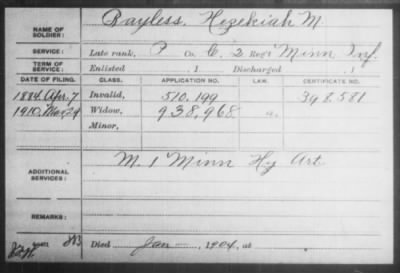 NAME OF SOLDIER: Bayless, Hezekiah M.
SERVICE: Late rank, P Co. C, 2 Reg't Minn Inf.
TERM OF SERVICE: Enlisted , 1 Discharged , 1
DATE OF FILING. CLASS. APPLICATION NO. LAW. CERTIFICATE NO.
1884 Apr. 7 Invalid, 510,199 398.581
1910. Mar 29 Widow, 938,968
Minor,
ADDITIONAL SERVICES: M. 1 Minn Hy Art
REMARKS:
Died Jan , 1904, at